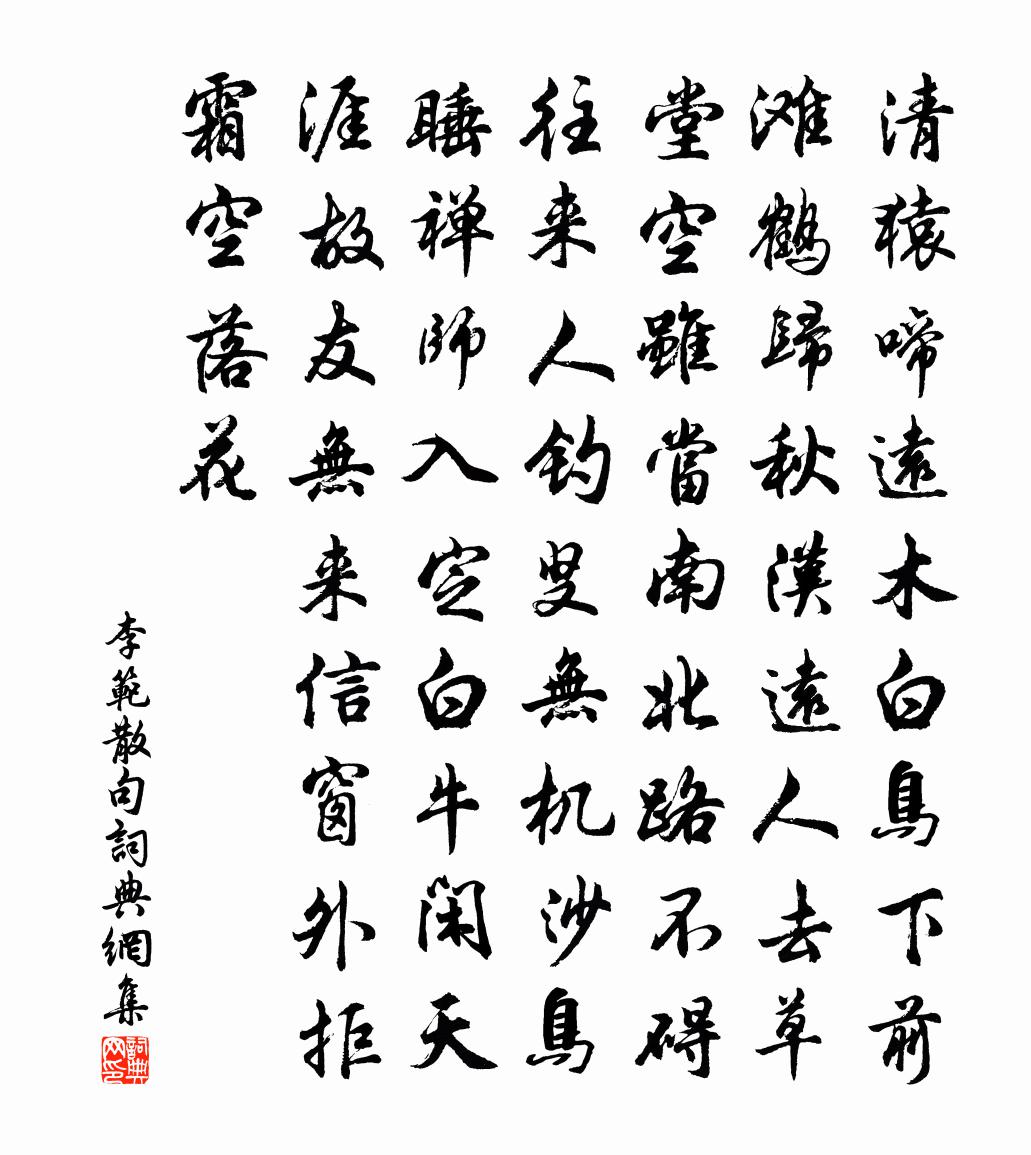 清猿啼遠木白鳥下前
滩鹤歸秋漢遠人去草
堂空雖當南北路不碍
往来人钓叟無机沙鳥
睡禅师入定白牛闲天
涯故友無来信窗外拒
霜空落花
李範散句詞典網集
詞典网印